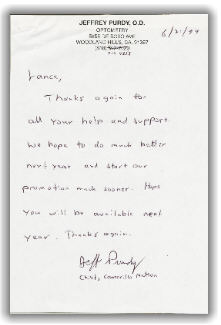 JEFFREY PURDY, O.D.
OPTOMETRY
WOODLAND HILLS, CA. 91367
6/21/99
Lance,
Thanks again for
all your help and support.
We hope to do much better
next year and start our
promotion much sooner. Hope
you will be available next
year. Thanks again.
Jeff Purdy
Chair, Camarillo